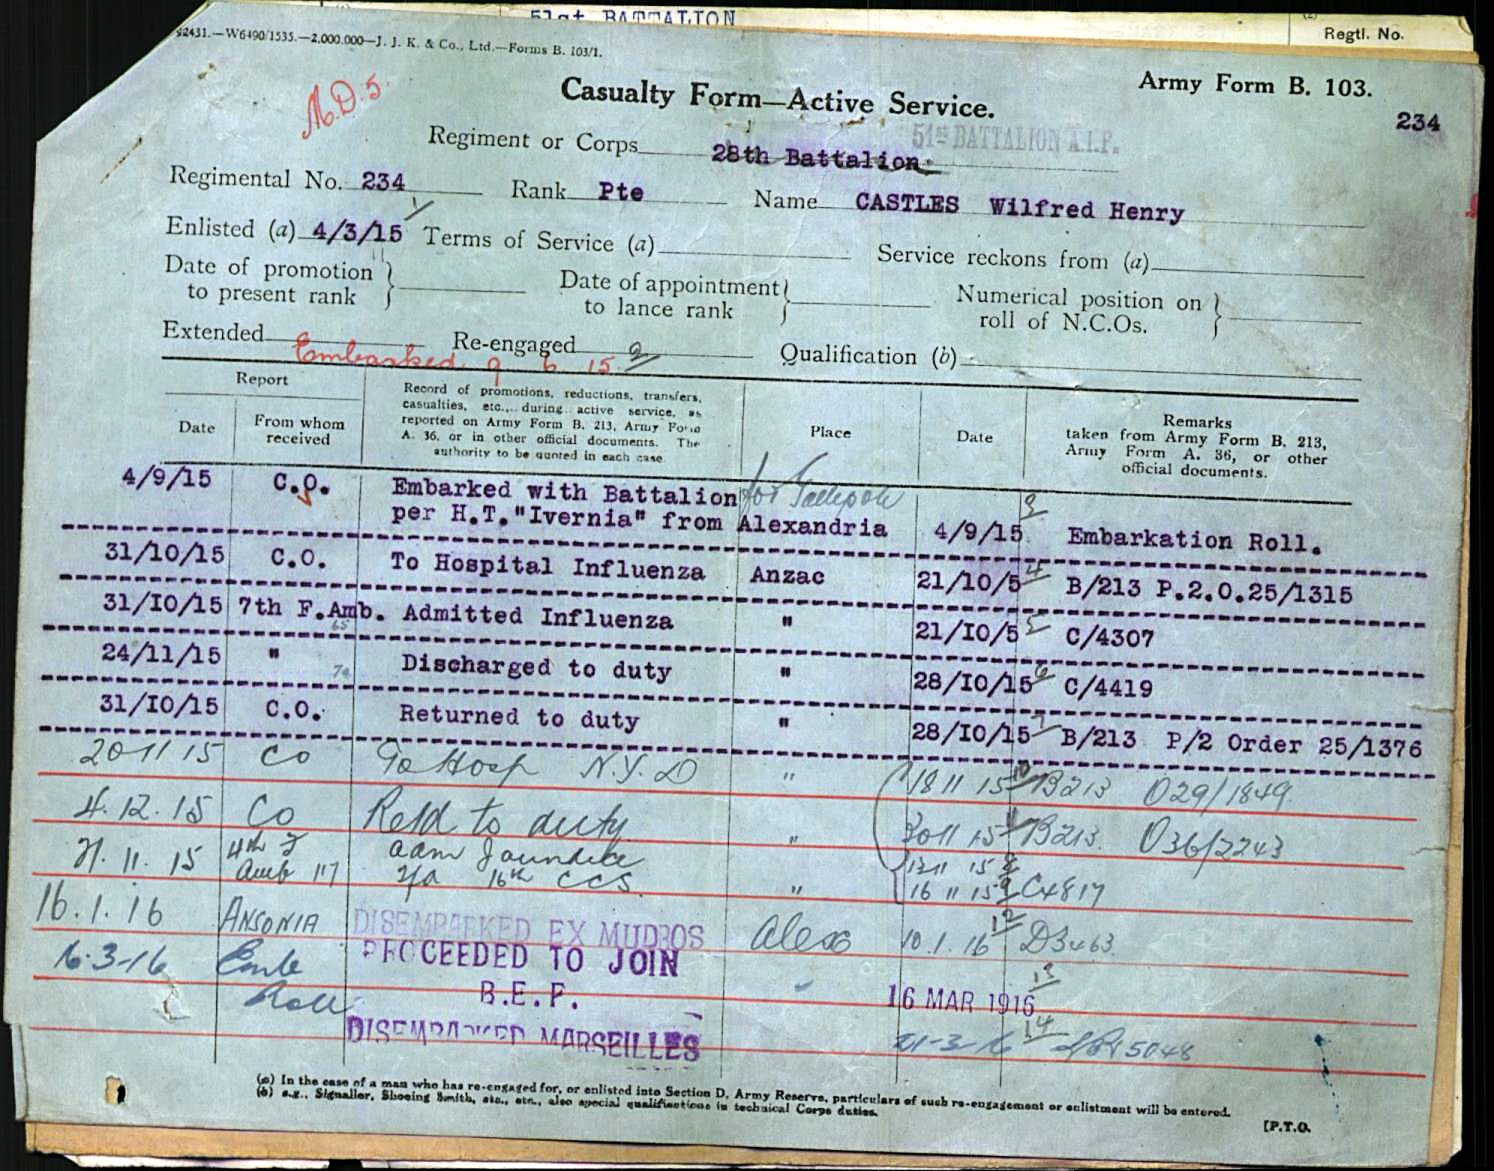 51st BATTALION
Regtl. No.
92431.—W6490/1535.—2,000,000—J. J. K. & Co., Ltd.—Forms B. 103/1.
M.D.5.
Casualty Form—Active Service.
Army Form B. 103.
234
51ST BATTALION A.I.F.
Regiment or Corps 28th Battalion
Regimental No. 234 Rank Pte Name CASTLES Wilfred Henry
Enlisted (a) 4/3/15 Terms of Service (a) Service reckons from (a)
Date of promotion to present rank } Date of appointment to lance rank } Numerical position on roll of N.C.Os. }
Extended Re-engaged Qualification (b)
Embarked 9 6 15 2
Report
Date From whom received Record of promotions, reductions, transfers, casualties, etc., during active service, as reported on Army Form B. 213, Army Form A. 36, or in other official documents. The authority to be quoted in each case. Place Date Remarks taken from Army Form B. 213, Army Form A. 36, or other official documents.
4/9/15 C.O. Embarked with Battalion for Gallipoli 3
per H.T."Ivernia" from Alexandria 4/9/15 Embarkation Roll.
31/10/15 C.O. To Hospital Influenza Anzac 21/10/5 4 B/213 P.2.O.25/1315
31/IO/15 7th F.Amb. Admitted Influenza " 21/IO/5 5 C/4307
24/11/15 " Discharged to duty " 28/IO/15 6 C/4419
31/IO/15 C.O. Returned to duty " 28/IO/15 7 B/213 P/2 Order 25/1376
20 11 15 CO To Hosp N.Y.D " 18 11 15 10 B213 O29/1849
4.12.15 CO Retd to duty " 30 11 15 11 B213. O36/2243
21.11.15 4th F Amb 117 adm Jaundice 13 11 15 8
T/a 16th CCS. " 16 11 15 9 C4817
16.1.16 ANSONIA DISEMBARKED EX MUDROS Alex 10.1.16 12 D3463
16.3-16 Emb Roll PROCEEDED TO JOIN
B.E.F. 16 MAR 1916 13
DISEMBARKED MARSEILLES 21-3-16 14 5048
(a) In the case of a man who has re-engaged for, or enlisted into Section D, Army Reserve, particulars of such re-engagement or enlistment will be entered.
(b) e.g., Signaller, Shoeing Smith, etc., etc., also special qualifications in technical Corps duties.
[P.T.O.